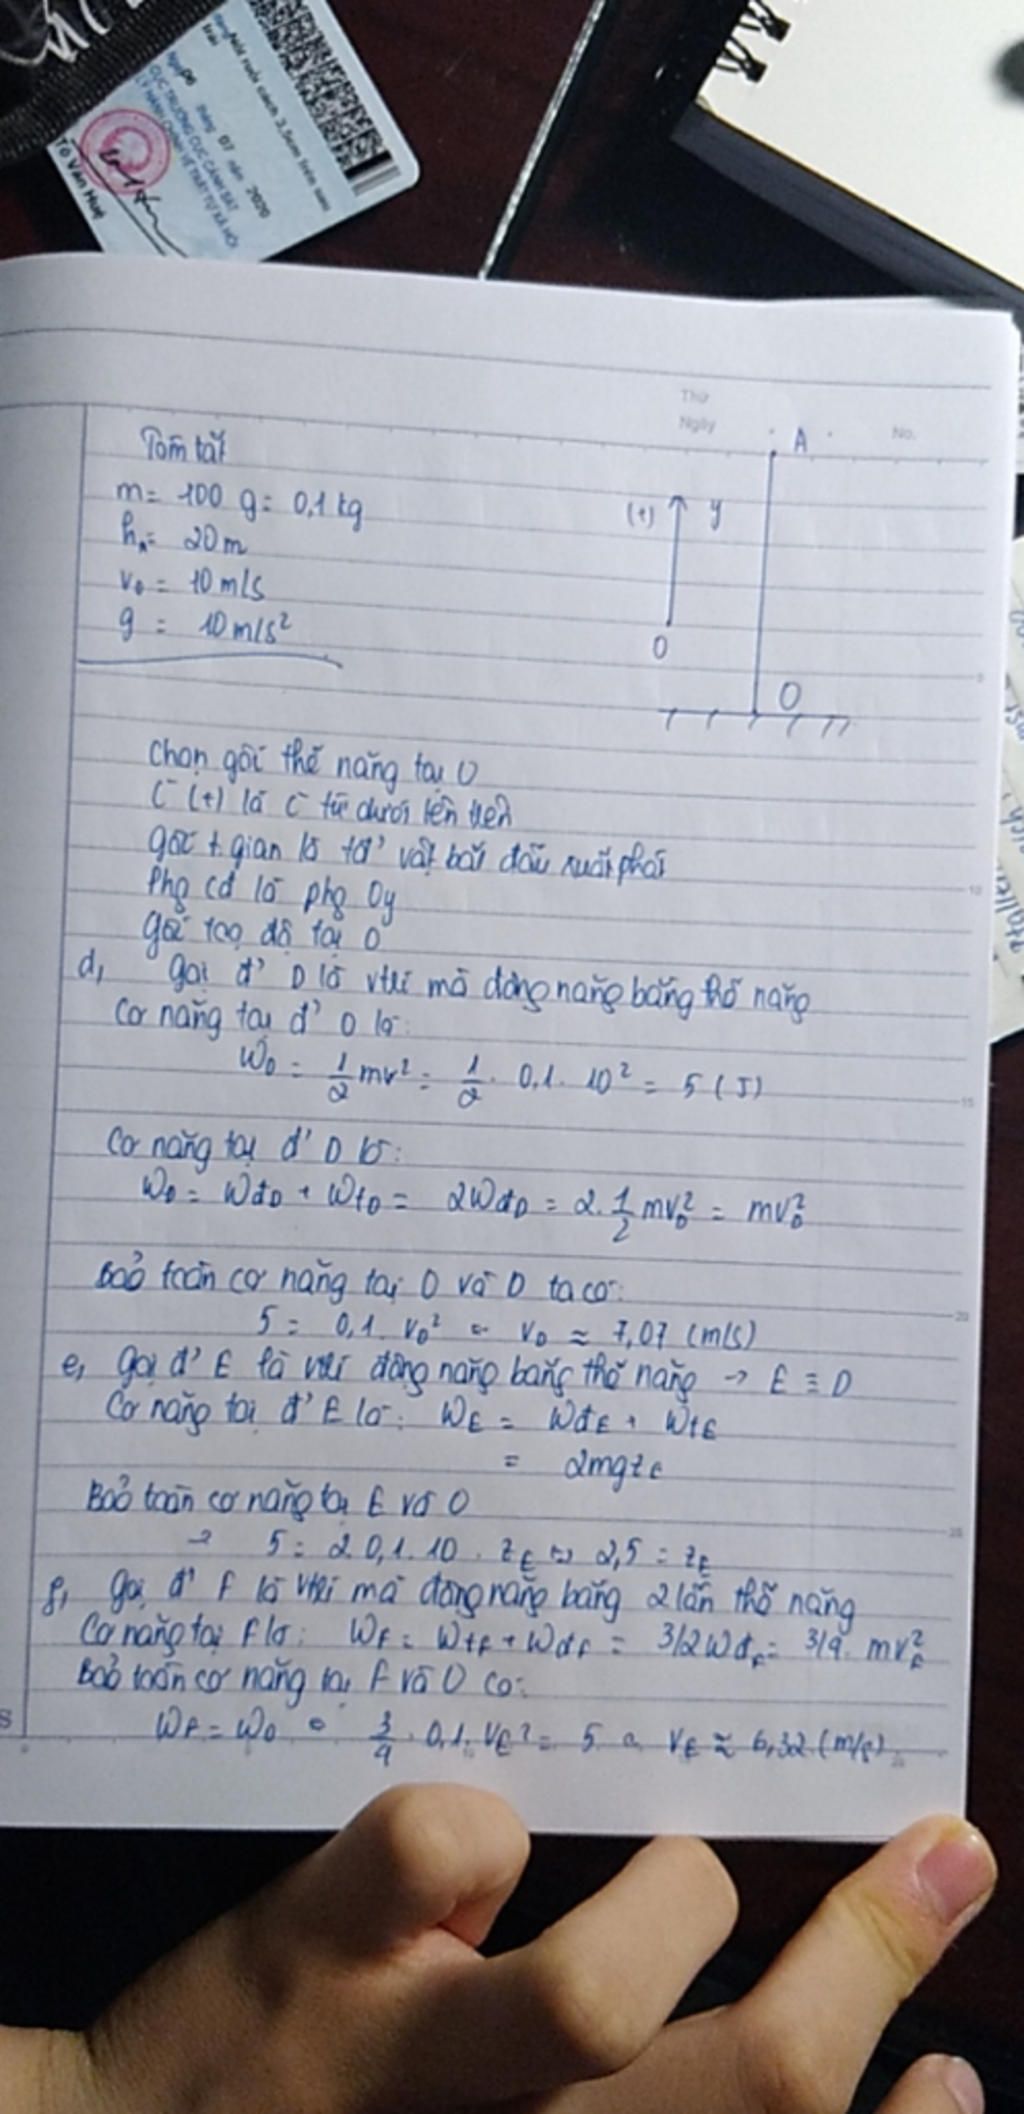 tháng 07 năm 2020
CỤC TRƯỞNG CỤC CẢNH SÁT
Tô Văn Huệ
Thứ
Ngày
No.
Tóm tắt
m = 100 g = 0,1 kg
h = 20 m
v₀ = 10 m/s
g = 10 m/s²
A
(+) y
O
O
Chọn gốc thế năng tại O
C (+) là C từ dưới lên trên
gốc t.gian là tđ' vật bắt đầu xuất phát
Phg cđ là phg Oy
gốc toạ độ tại O
d, gọi đ' D là vtrí mà động năng bằng thế năng
Cơ năng tại đ' O là:
W₀ = 1/2 mv² = 1/2 . 0,1 . 10² = 5 (J)
Cơ năng tại đ' D là:
W_D = Wđ_D + Wt_D = 2Wđ_D = 2. 1/2 mv_D² = mv_D²
Bảo toàn cơ năng tại O và D ta có:
5 = 0,1. v_D² v_D ≈ 7,07 (m/s)
e, gọi đ' E là vtrí động năng bằng thế năng → E ≡ D
Cơ năng tại đ' E là: W_E = Wđ_E + Wt_E
= 2mgz_E
Bảo toàn cơ năng tại E và O
→ 5 = 2.0,1.10 . z_E ⇔ 2,5 = z_E
f, gọi đ' F là vtrí mà động năng bằng 2 lần thế năng
Cơ năng tại F là: W_F = Wt_F + Wđ_F = 3/2Wđ_F = 3/4. mv_F²
Bảo toàn cơ năng tại F và O có:
W_F = W₀ 3/4 . 0,1. v_E² = 5 v_E ≈ 6,32 (m/s)